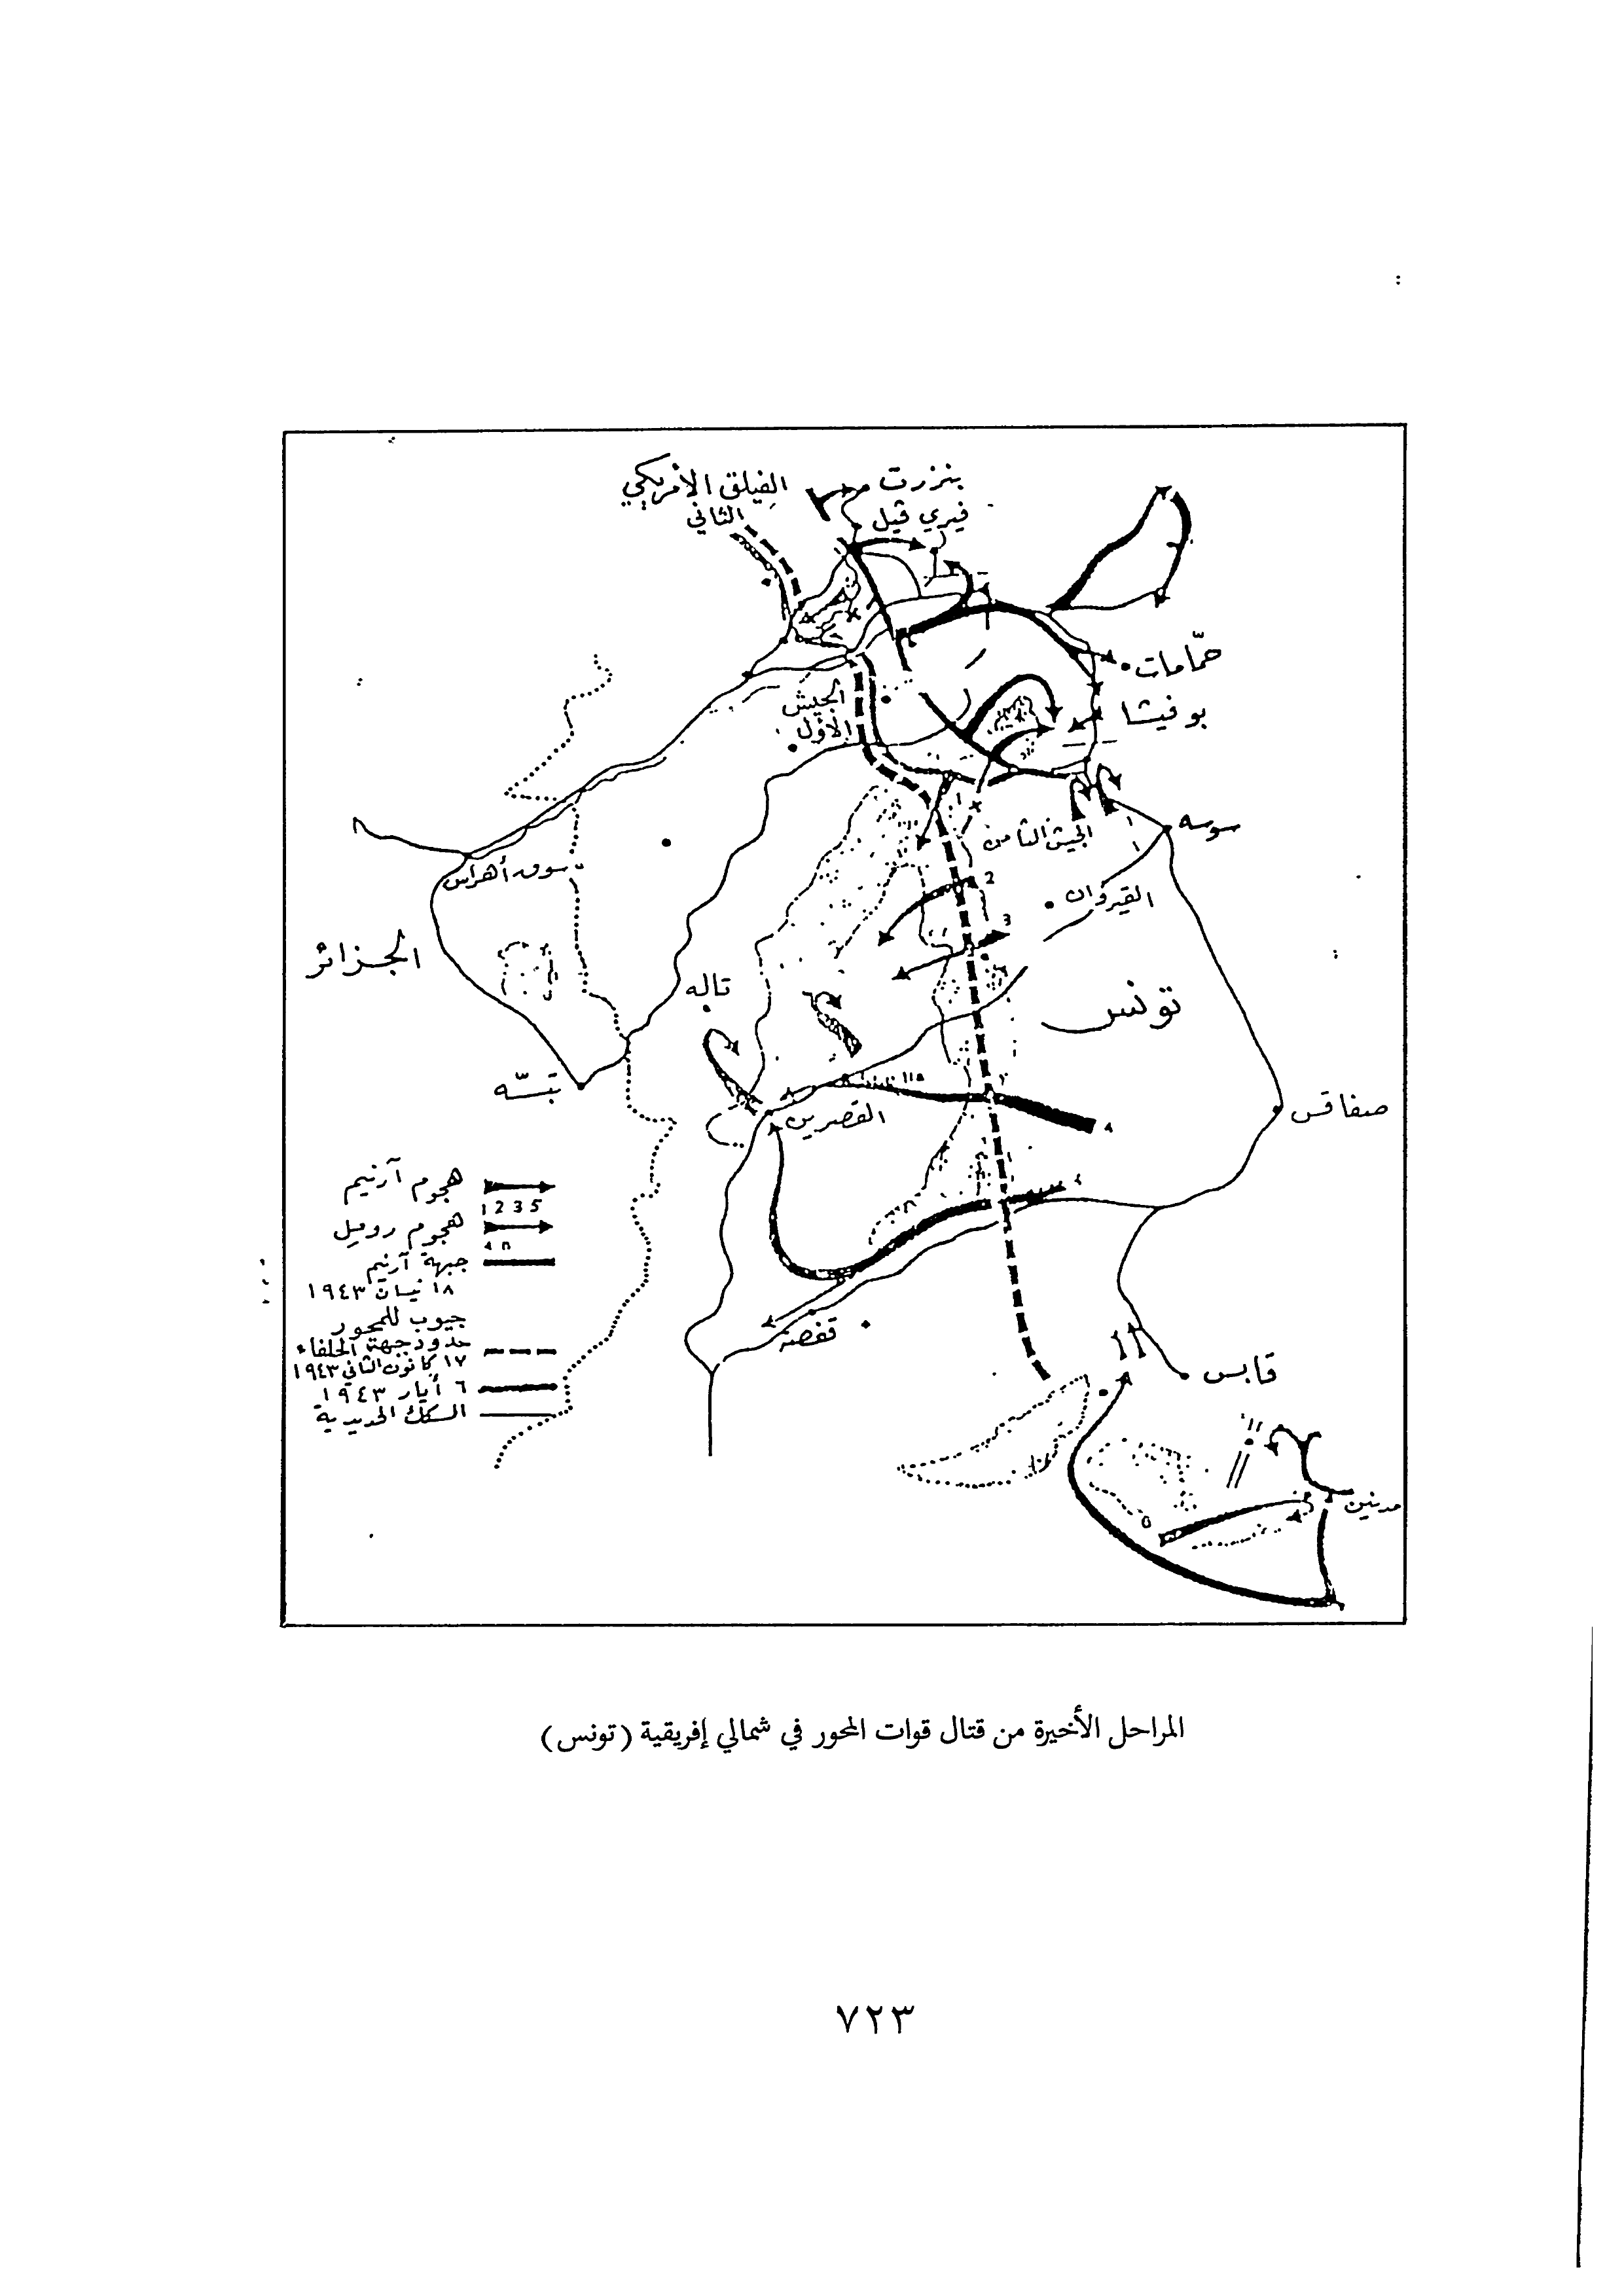 الفيلق الأمريكي
الثاني
بنزرت
فيري فيل
حمّامات
بو فيشا
الجيش
الأول
الجيش الثامن
سوسه
1
2
3
القيروان
سوق أهراس
الجزائر
تاله
تونس
تبسّه
القصرين
صفاقس
قفصة
قابس
مدنين
هجوم آرنيم
1 2 3 5
هجوم روميل
جبهة آرنيم
١٨ نيسان ١٩٤٣
جيوب للمحور
حدود جبهة الحلفاء
١٧ كانون الثاني ١٩٤٣
٦ أيار ١٩٤٣
السكك الحديدية
المراحل الأخيرة من قتال قوات المحور في شمالي إفريقية (تونس)
٧٢٣